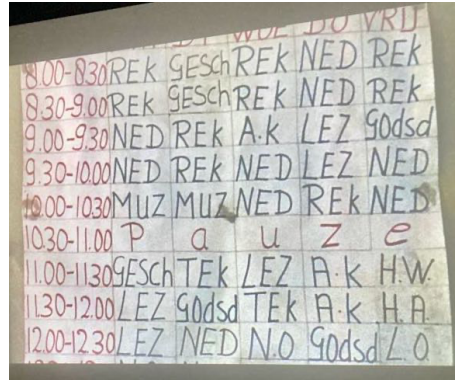 WOE DO VRIJ
8.00-8.30 REK GESCH REK NED REK
8.30-9.00 REK GESCH REK NED REK
9.00-9.30 NED REK A.K LEZ Godsd
9.30-10.00 NED REK NED LEZ NED
10.00-10.30 MUZ MUZ NED REK NED
10.30-11.00 P a u z e
11.00-11.30 GESCH TEK LEZ A.K H.W.
11.30-12.00 LEZ Godsd TEK A.K H.A.
12.00-12.30 LEZ NED N.O Godsd L.O